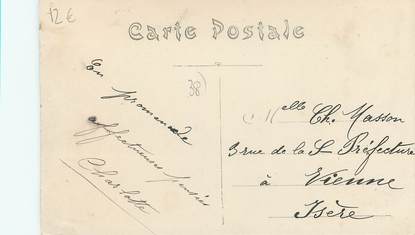 12 €
Carte Postale
38)
En promenade
affectueuses pensées
Charlotte
Mlle Ch. Masson
3 rue de la S Préfecture
à Vienne
Isère